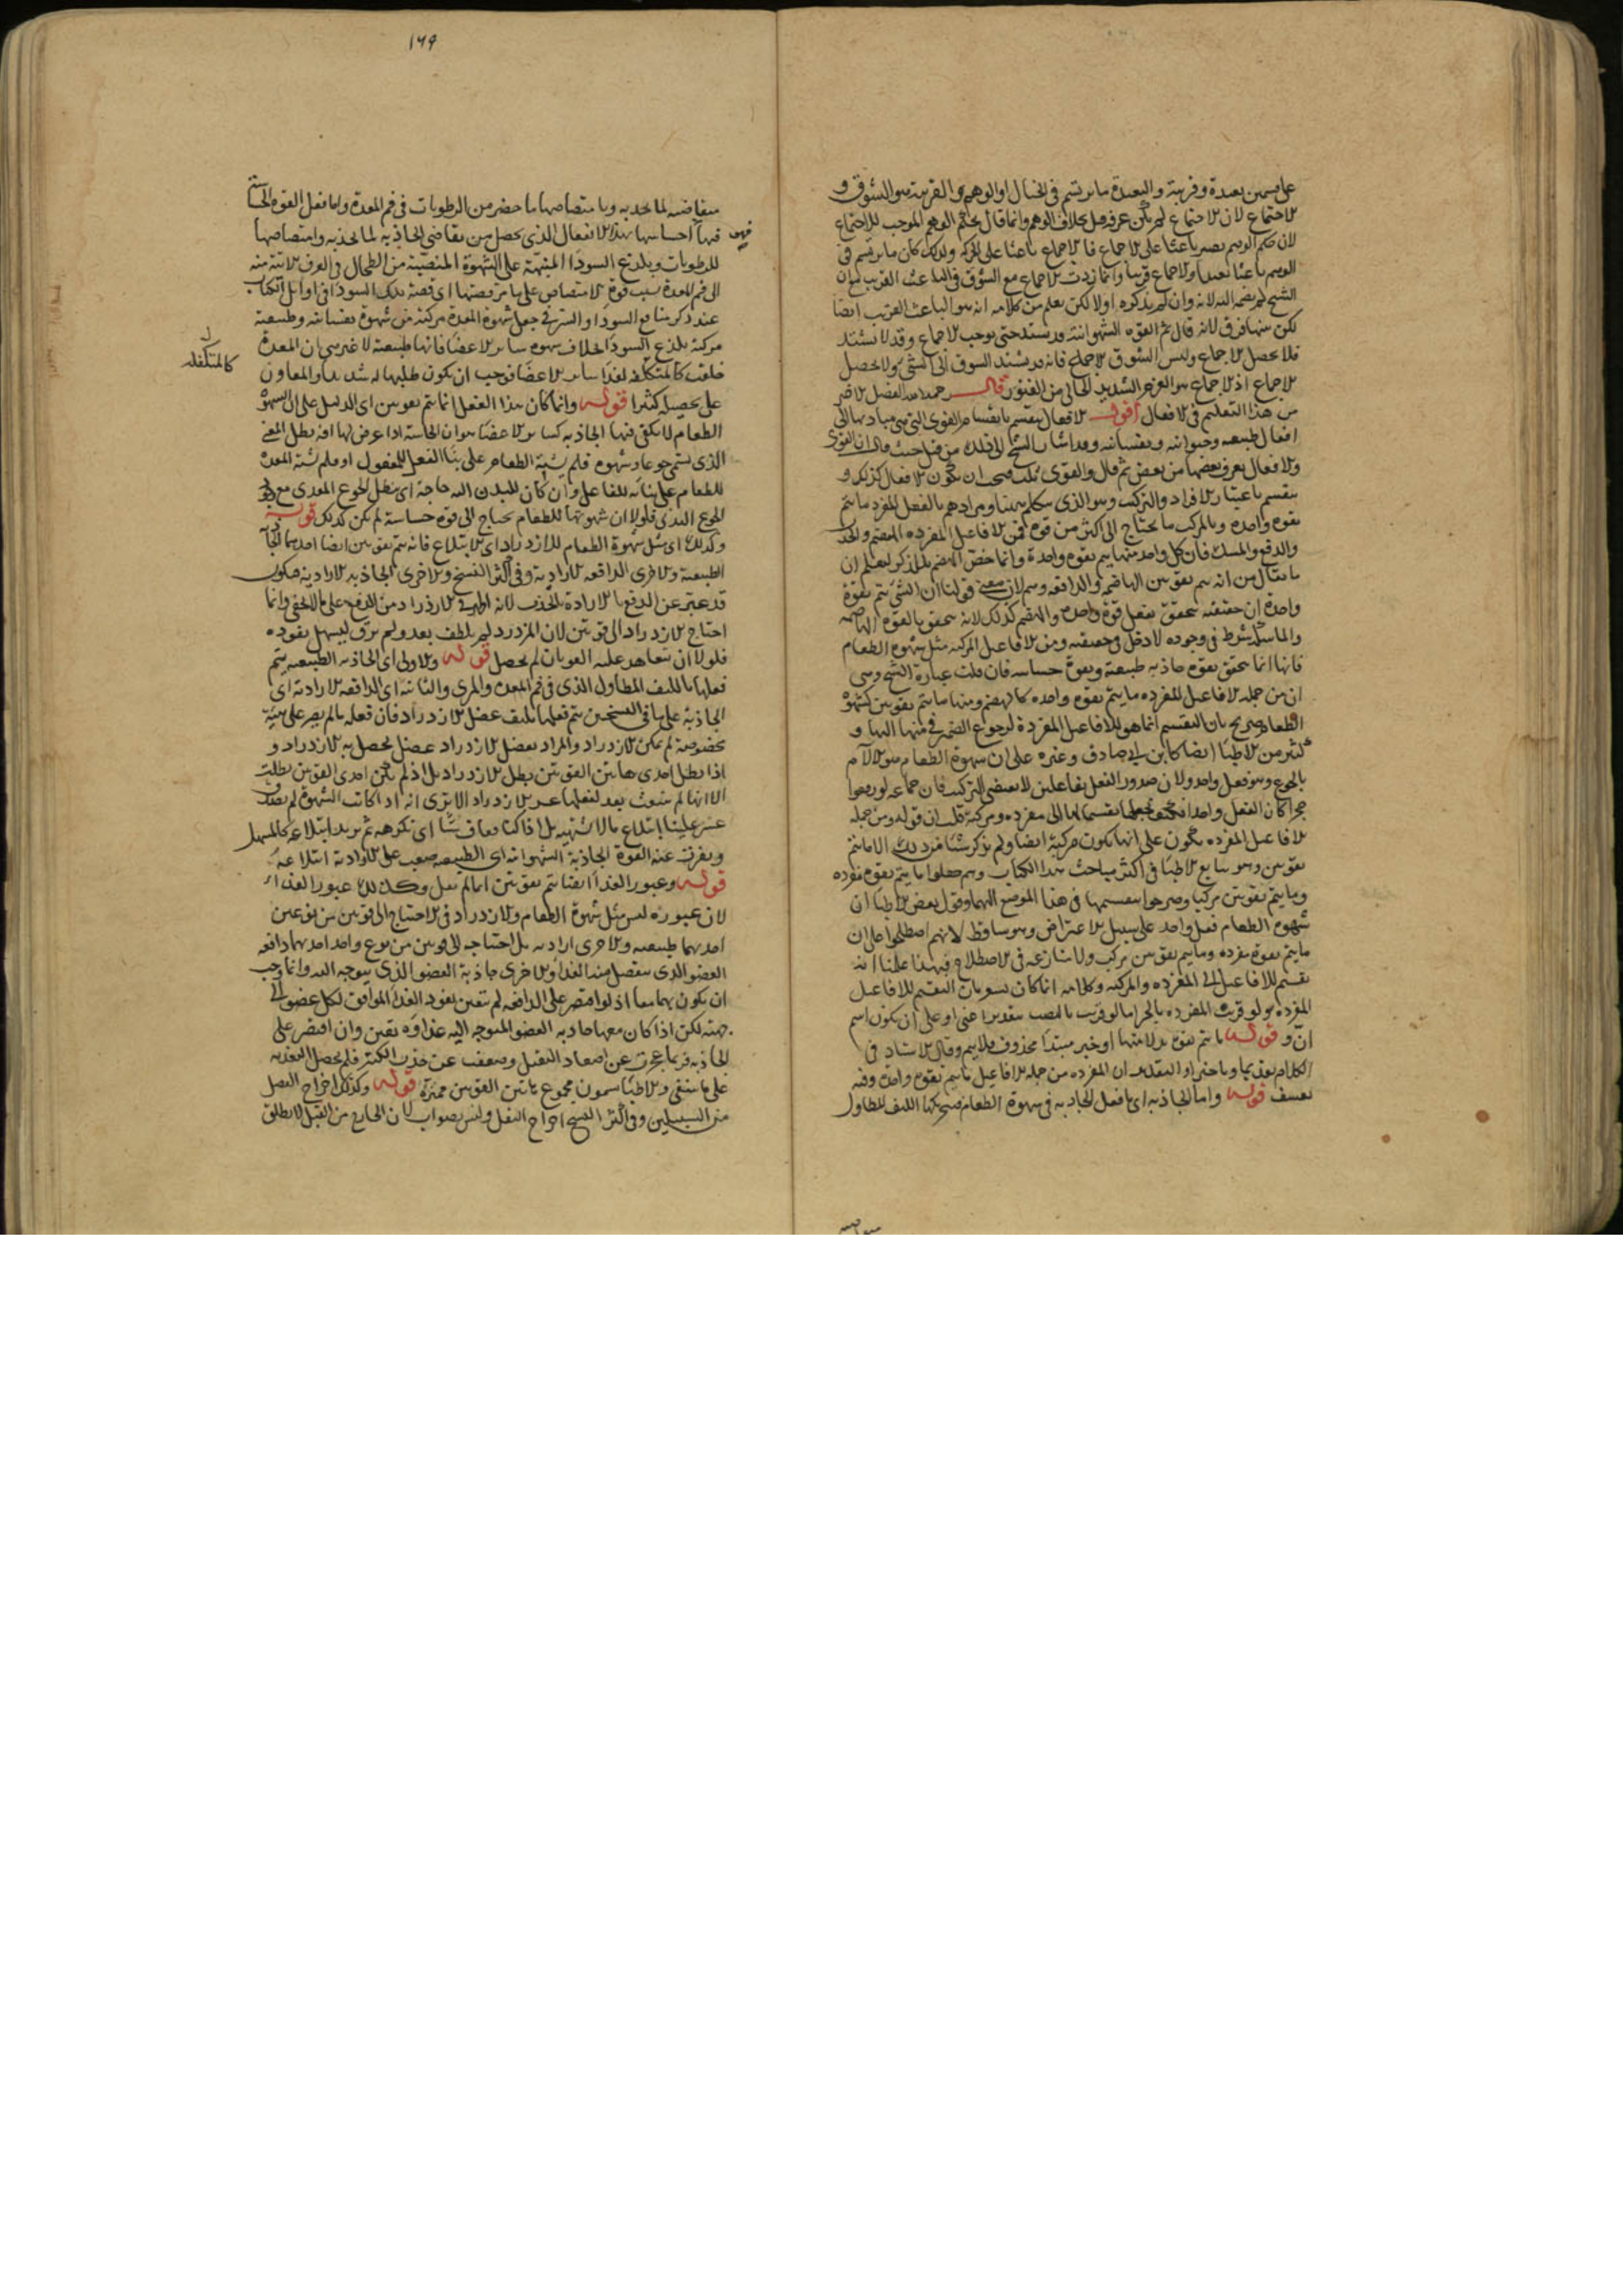 على قسمين بعيدة وقريبة والبعيدة ما يرتسم في الخيال او الوهم والقريبة هو الشوق و
الاجماع لان الاجماع لم يكن عرفه قبل بخلاف الوهم وانما قال بحكم الوهم الموجب للاجماع
لان حكم الوهم يصير باعثا على الاجماع فالاجماع باعثا على الحركة ولذلك كان ما يرتسم في
الوهم باعثا بعيدا والاجماع قريبا وانما زدت الاجماع مع الشوق في الباعث القريب فان
الشيخ لم يضمه اليه لانه وان لم يذكره اولا لكن يعلم من كلامه انه هو الباعث القريب ايضا
لكن بينهما فرق لانه قال ثم القوه الشهوانية قد يشتد حتى يوجب الاجماع وقد لا يشتد
فلا يحصل الاجماع وليس الشوق الاجماع فانه قد يشتد الشوق الى الشئ ولا يحصل
الاجماع اذ الاجماع هو العزم الشديد الخالي من الفتور قال رحمه الله الفصل الاخير
من هذا التعليم في الافعال اقول الافعال ينقسم بانقسام القوى التي هي مباديها الى
افعال طبيعيه وحيوانيه ونفسانيه وقد اشار الشيخ الى ذلك من قبل حيث قال ان القوى
والافعال يعرف بعضها من بعض ثم قال والقوى ثلث فيجب ان يكون الافعال كذلك و
ينقسم باعتبار الافراد والتركيب وهو الذي يتكلم ههنا ومرادهم بالفعل المفرد ما يتم
بقوه واحده وبالمركب ما يحتاج الى اكثر من قوه فمن الافاعيل المفرده الهضم والجذب
والدفع والمسك فان كل واحد منها يتم بقوه واحدة وانما خص الهضم بالذكر ليعلم ان
ما يقال من انه يتم بقوتين الهاضمه والدافعه وهم لان معنى قولنا ان الشئ يتم بقوة
واحدة ان حقيقته يتحقق بفعل قوة واحدة والهضم كذلك لانه يتحقق بالقوه الهاضمه
والماسكه شرط في وجوده لا دخل في حقيقته ومن الافاعيل المركبه مثل شهوه الطعام
فانها انما يتحقق بقوه جاذبه طبيعية وبقوة حساسه فان قلت عبارة الشيخ وهي
ان من جمله الافاعيل المفرده ما يتم بقوه واحده كالهضم ومنها ما يتم بقوتين كشهوة
الطعام صريح بان التقسيم انما هو للافاعيل المفردة لرجوع الضمير في منها اليها و
كثير من الاطبا ايضا كابن ابي صادق وغيره على ان شهوة الطعام هو الالام
بالجوع وهو فعل واحد ولان صدور الفعل بفاعلين لا يقتضي التركيب فان جماعه لو رفعوا
حجرا كان الفعل واحدا فكيف تجعلها تقسيما لها الى مفرده ومركبة قلت ان قوله ومن جمله
الافاعيل المفرده يكون على انها يكون مركبة ايضا ولم يذكر شيئا من ذلك الا ما يتم
بقوتين وهو يتابع الاطبا في اكثر مباحث هذا الكتاب وهم جعلوا ما يتم بقوه مفرده
وما يتم بقوتين مركبا وصرحوا بتقسيمها في هذا الموضع اليهما وقول بعض الاطبا ان
شهوه الطعام فعل واحد على سبيل الاعتراض وهو ساقط لانهم اصطلحوا على ان
ما يتم بقوة مفرده وما يتم بقوتين مركب ولا منازعه في الاصطلاح فبهذا علمنا انه
تقسيم للافاعيل الى المفرده والمركبه وكلامه انما كان لبيان التقسيم للافاعيل
المفرده لو قريت المفرده بالجر اما لو قريت بالنصب بتقدير اعني او على ان يكون اسم
ان و قوله ما يتم بقوة بدلا منها او خبر مبتدا محذوف فلا يتم وقال الاستاد في
الكلام تقديما وتاخيرا والتقدير ان المفرده من جمله الافاعيل ما يتم بقوه واحدة وفيه
تعسف قوله واما الجاذبه اى ما فعل الجاذبه في شهوة الطعام فبتحريكها الليف المطاول
١٦٩
متقاضيه لما يجذبه وبامتصاصها ما حضر من الرطوبات في فم المعدة واما فعل القوه الحساسة
فيها احساسها بهذا الانفعال الذي يحصل من تقاضي الجاذبه لما يجذبه وامتصاصها
للرطوبات وبلذع السودا المنبهة على الشهوة المنصبة من الطحال في العرف الاتية منه
الى فم المعدة بسبب قوة الامتصاص على ما مر قصتها اى قصة تلك السودا في اوايل الكتاب
عند ذكر منافع السودا والسر في جعل شهوة المعدة مركبة من شهوة نفسانية وطبيعية
مركبة بلذع السودا بخلاف شهوه ساير الاعضا فانها طبيعية لا غير هي ان المعدة
خلقت كالمتكلفه لغذا ساير الاعضا فوجب ان يكون طلبها له شديدا والمعاون
على تحصيله كثيرا قوله وانما كان هذا الفعل انما يتم بقوتين اى الدليل على ان شهوة
الطعام لا يكفي فيها الجاذبه كساير الاعضا هو ان الحاسة اذا عرض لها افه بطل المعنى
الذي يسمى جوعا وشهوه فلم يشته الطعام على بنا الفعل للمفعول او فلم يشته المعدة
للطعام على بنائه للفاعل وان كان للبدن اليه حاجة اى يبطل الجوع المعدي مع وجود
الجوع البدني فلولا ان شهوتها للطعام يحتاج الى قوه حساسة لم يكن كذلك قوله
وكذلك اى مثل شهوة الطعام للازدراد اى الابتلاع فانه يتم بقوتين ايضا احديهما الجاذبه
الطبيعية والاخرى الدافعه الارادية وفي اكثر النسخ والاخرى الجاذبه الارادية فيكون
قد عبر عن الدفع بالارادة بالجذب لانه اظهر في الازدراد من الدفع على ما لا يخفى وانما
احتاج الازدراد الى قوتين لان المزدرد لم يلطف بعد ولم يرق ليسهل نفوذه
فلولا ان تعاهد عليه القوتان لم يحصل قوله والاولى اى الجاذبه الطبيعيه يتم
فعلها بالليف المطاول الذي في فم المعدة والمرى والثانيه اى الدافعه الارادية اى
الجاذبة على ما في النسختين يتم فعلها بليف عضل الازدراد فان فعله ما لم يصر على هيئة
مخصوصة لم يمكن الازدراد والمراد بعضل الازدراد عضل يحصل به الازدراد و
اذا بطل احدى هاتين القوتين بطل الازدراد بل اذا لم يكن احدى القوتين بطلت
الا انها لم ينبعث بعد لفعلها عسر الازدراد الا ترى انه اذا كانت الشهوة لم يصدق
عسر علينا ابتلاع ما لا نشتهيه بل اذا كنا نعاف شيا اى نكرهه ثم نريد ابتلاعه كالمسهل
ونفرت عنه القوة الجاذبة الشهوانيه اى الطبيعيه صعب على الارادية ابتلاعه
قوله وعبور الغذا ايضا يتم بقوتين انما لم يقل وكذلك عبور الغذاء
لان عبوره ليس مثل شهوة الطعام والازدراد في الاحتياج الى قوتين من نوعين
احديهما طبيعيه والاخرى اراديه بل احتياجه الى قوتين من نوع واحد احديهما دافعه
العضو الذي ينفصل منه الغذا والاخرى جاذبة العضو الذي يتوجه اليه وانما وجب
ان يكون بهما معا اذ لو اقتصر على الدافعه لم يتعين نفوذ الغذا الموافق لكل عضو الى
جهته لكن اذا كان معها جاذبه العضو المتوجه اليه غذاؤه تعين وان اقتصر على
الجاذبه فربما عجزت عن اصعاد الثقيل وضعفت عن جذب الكثير فلم يحصل التغذيه
على ما ينبغي والاطبا يسمون مجموع هاتين القوتين مميزة قوله وكذلك اخراج الثفل
من السبيلين وفي اكثر النسخ اخراج الثفل وليس بصواب لان الخارج من القبل لا يطلق
كالمتكفله